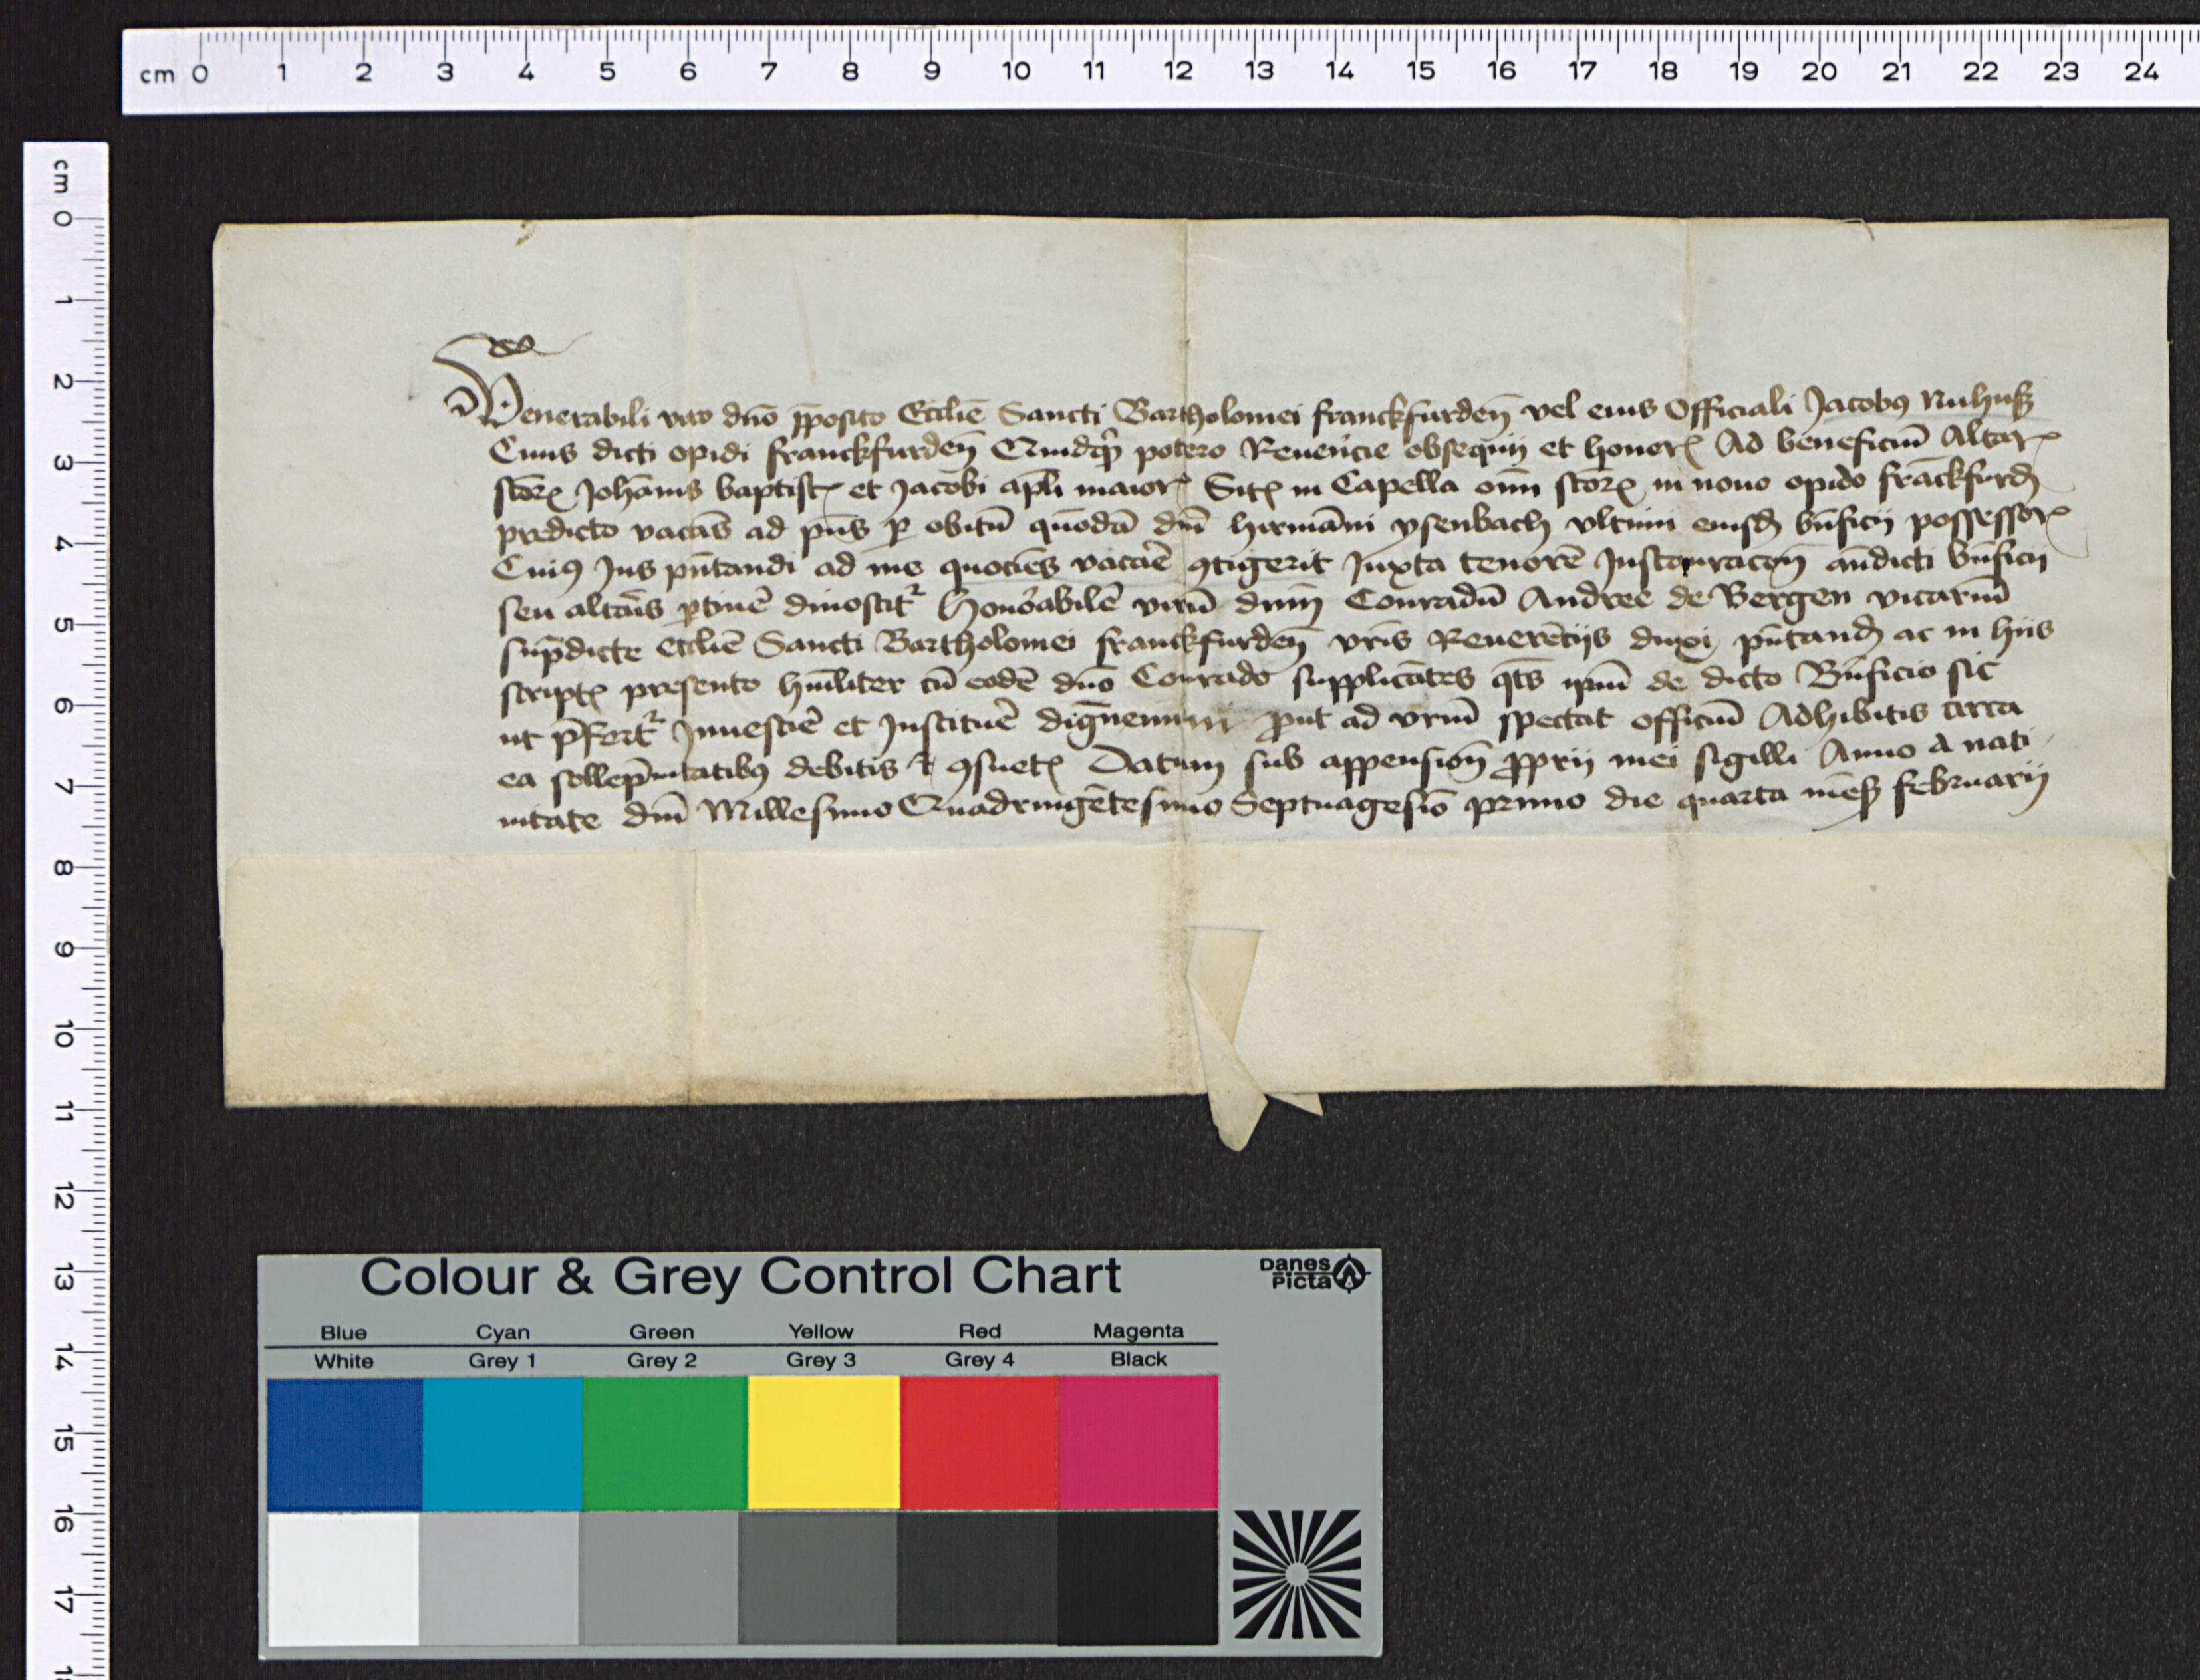 cm 0 1 2 3 4 5 6 7 8 9 10 11 12 13 14 15 16 17 18 19 20 21 22 23 24
cm 0 1 2 3 4 5 6 7 8 9 10 11 12 13 14 15 16 17
Venerabili viro dno pposito Ecclie Sancti Bartholomei franckfurden vel eius Officiali Jacobus Nuhuß
Ciuis dicti opidi franckfurden Quidqd potero Reuerncie obsequij et honor Ad beneficiu Altar
scor Johanis baptist et Jacobi apli maior Sit in Capella oim scor in nouo opido franckfurd
predicto vacas ad pns p obitu quoda dni hermani ysenbach vltimi eiusd bnficij possessor
Cui9 Jus pntandi ad me quocies vacare 9tigerit Juxta tenore Instauracon andicti bnficij
seu altaris ptinere dinoscit Honorabile viru dnm Conradu Andree de Bergen vicariu
supdicte ecclie Sancti Bartholomei franckfurden vris Reuerecijs duxi pntand ac in hijs
script presento humiliter cu eode dno Conrado supplicates qts ipm de dicto Bnficio sic
ut pfert Inuestire et Instituere dignemini put ad vrm spectat officiu Adhibitis circa
ea sollepnitatib9 debitis et 9suet Datum sub appension pprij mei sigilli Anno A nati
uitate dni Millesimo Quadringetesimo Septuagesio primo die quarta meß februarij
Colour & Grey Control Chart
Danes
Picta
Blue Cyan Green Yellow Red Magenta
White Grey 1 Grey 2 Grey 3 Grey 4 Black